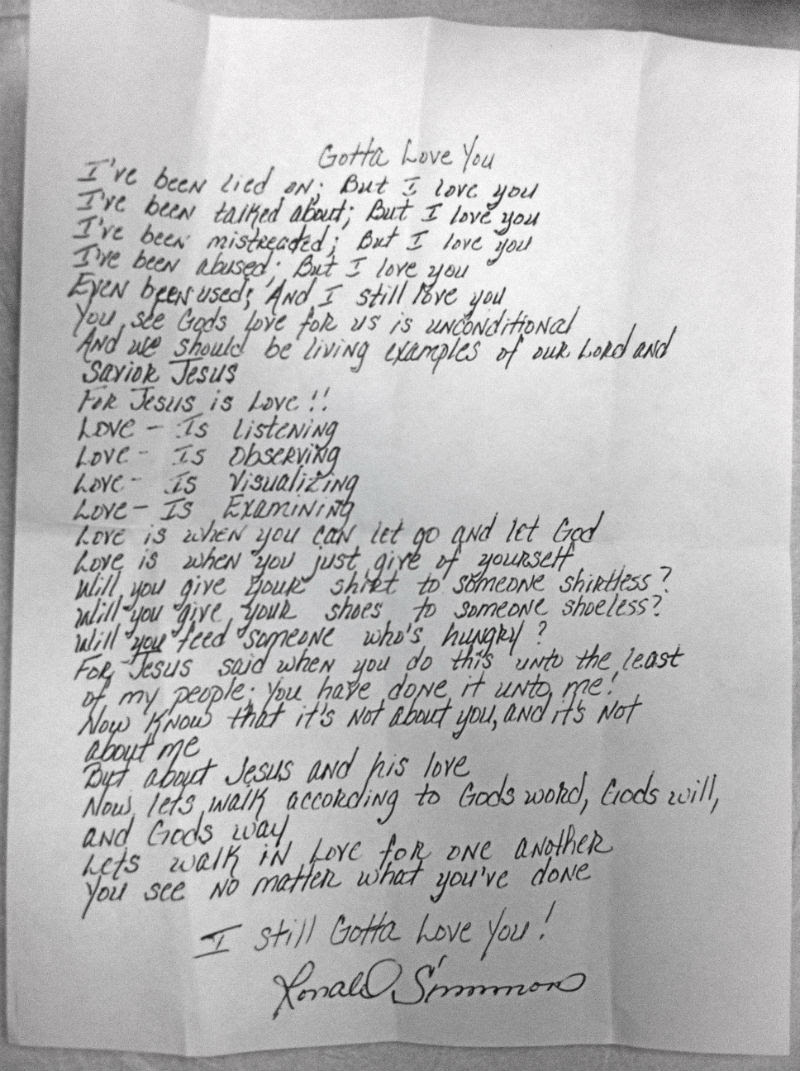 Gotta Love You
I've been lied on; But I love you
I've been talked about; But I love you
I've been mistreaded; But I love you
I've been abused; But I love you
Even been used; And I still love you
You see Gods love for us is unconditional
And we should be living examples of our Lord and
Savior Jesus
For Jesus is Love!!
Love - Is Listening
Love - Is Observing
Love - Is Visualizing
Love - Is Examining
Love is when you can let go and let God
Love is when you just give of yourself
Will you give your shirt to someone shirtless?
Will you give your shoes to someone shoeless?
Will you feed someone who's hungry?
For Jesus said when you do this unto the least
of my people; you have done it unto me!
Now know that it's not about you, and it's not
about me
But about Jesus and his love
Now lets walk according to Gods word, Gods will,
and Gods way
Lets walk in Love for one another
You see no matter what you've done
I still Gotta Love You!
Ronald Simmons